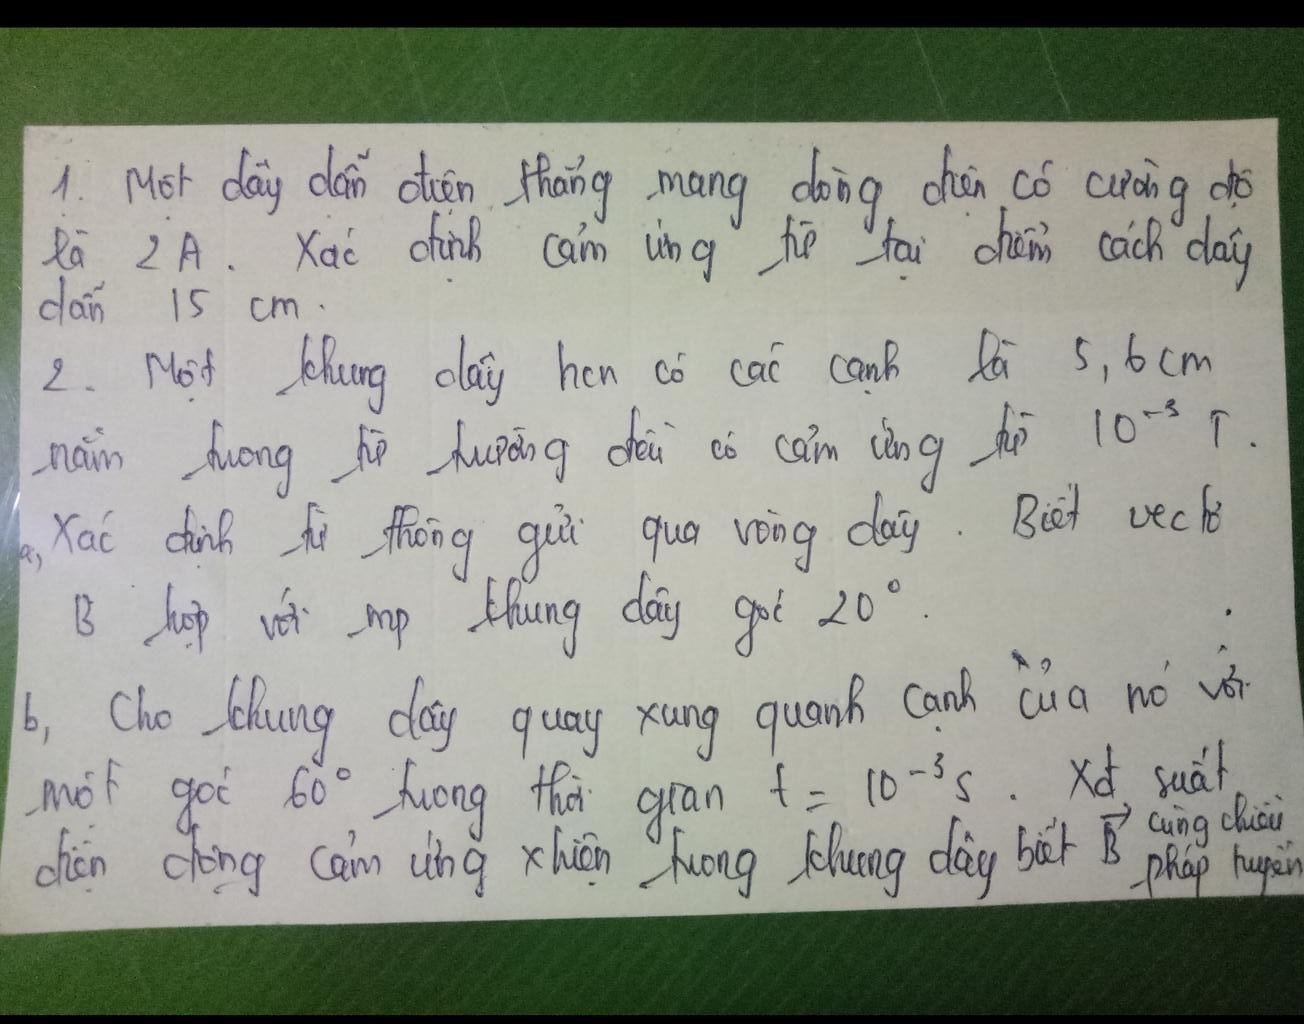 1. Một dây dẫn điện thẳng mang dòng điện có cường độ
là 2 A. Xác định cảm ứng từ tại điểm cách dây
dẫn 15 cm.
2. Một khung dây hcn có các cạnh là 5, 6 cm
nằm trong từ trường đều có cảm ứng từ 10⁻³ T.
a, Xác định từ thông gửi qua vòng dây. Biết vectơ
B hợp với mp khung dây góc 20°.
b, Cho khung dây quay xung quanh cạnh của nó với
một góc 60° trong thời gian t = 10⁻³ s. Xđ suất
điện động cảm ứng xhiện trong khung dây biết B⃗ cùng chiều
pháp tuyến